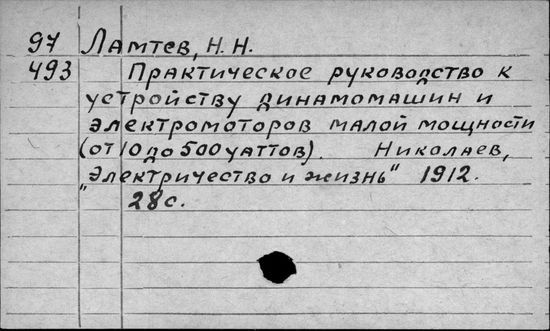 97 Ламтев, Н. Н.
493 Практическое руководство к
устройству динамомашин и
электромоторов малой мощности
(от 10 до 500 уаттов). Николаев,
"Электричество и жизнь" 1912.
28 с.